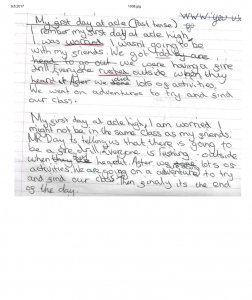 5/3/2017
1008.jpg
www. you us
go
My first day at acle (Past tense)
I remember my first day at acle high
I was worried I wasn't going to be
with my friends. We got
to go out we were having a fire
drill. Everyone rushed outside when they
heard it After we did lots of activities.
We went on adventures to try and find
our class.
My first day at acle high, I am worried I
might not be in the same class as my friends.
MR Day is telling us that there is going to
be a fire drill. Everyone is rushing outside
when they hear it. After we lots of
activities. We are going on a adventure to try
and find our class. Then finaly its the end
of the day.